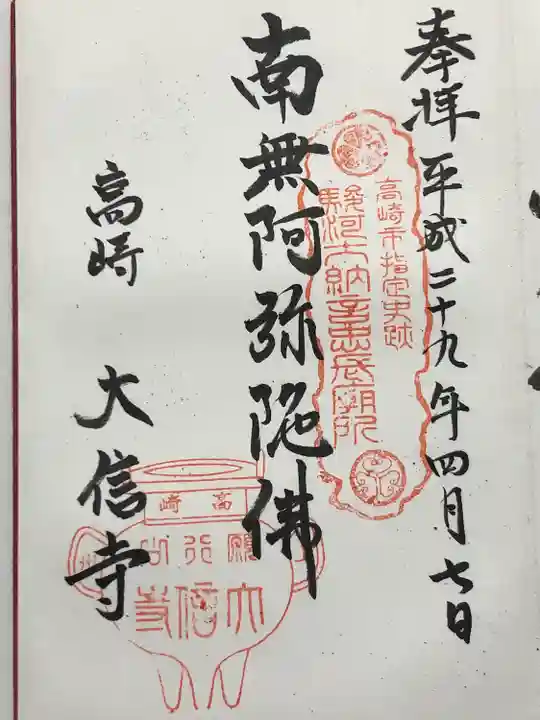 奉拝 平成二十九年四月七日
高崎市指定史跡
駿河大納言忠長廟所
南無阿弥陀佛
高崎 大信寺
高崎
願行山
大信寺